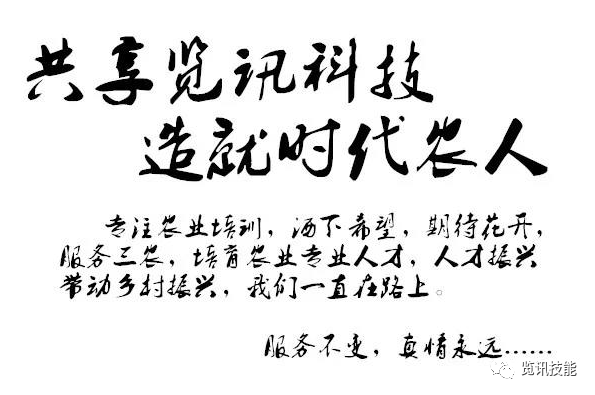 共享览讯科技
造就时代农人
专注农业培训，洒下希望，期待花开，
服务三农，培育农业专业人才，人才振兴
带动乡村振兴，我们一直在路上。
服务不变，真情永远……
览讯技能